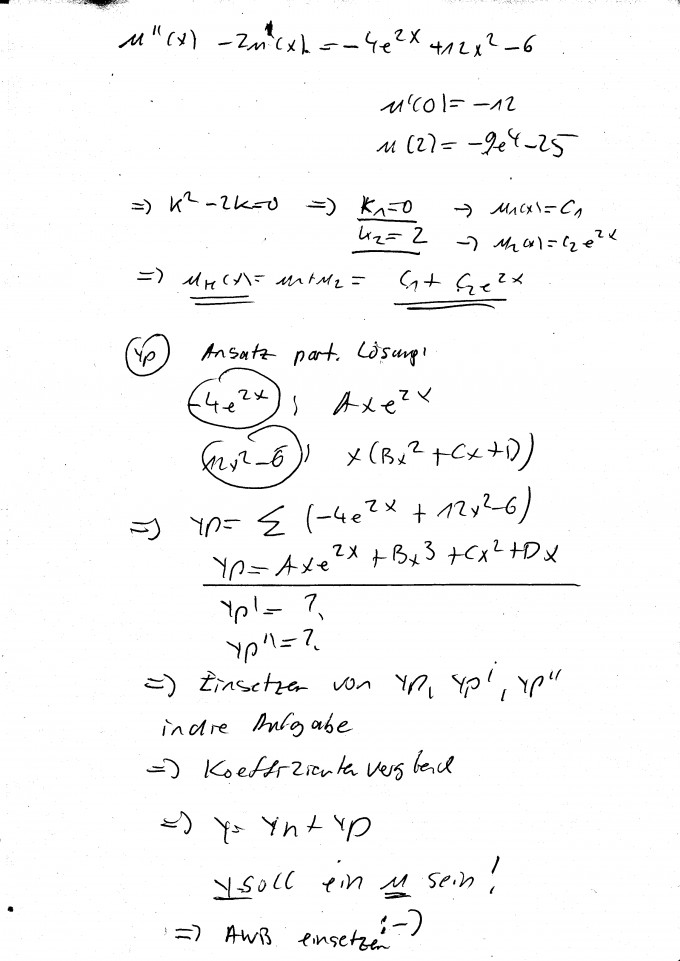 u''(x) -2u'(x) = -4e^{2x} +12x^2 -6
u'(0) = -12
u(2) = -9e^4 -25
=> k^2 -2k=0 => k_1=0 -> u_1(x)=C_1
k_2=2 -> u_2(x)=C_2 e^{2x}
=> u_H(x) = u_1+u_2 = C_1 + C_2 e^{2x}
yp Ansatz part. Lösung:
-4e^{2x} ; Axe^{2x}
12x^2-6 ; x(Bx^2+Cx+D)
=> yp= Σ (-4e^{2x} + 12x^2-6)
yp=Axe^{2x} +Bx^3 +Cx^2+Dx
yp' = ?
yp''=?
=> Einsetzen von yp, yp', yp''
in die Aufgabe
=> Koeffizientenvergleich
=> y= yh + yp
y soll ein u sein!
=> AWB einsetzen :-)